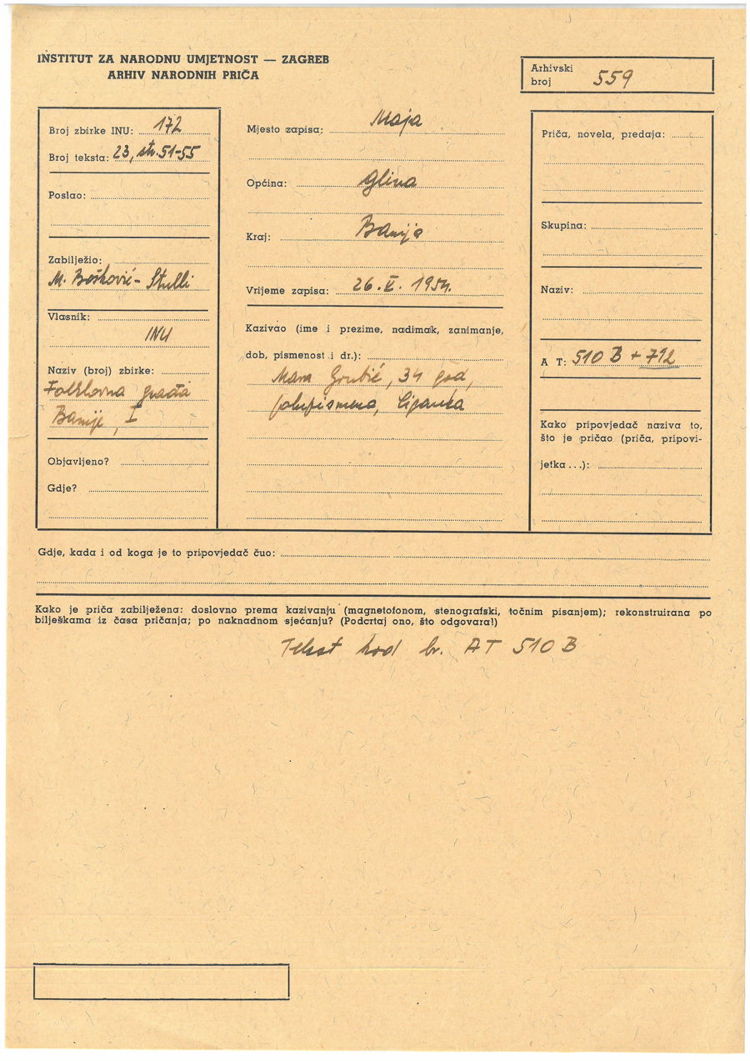 INSTITUT ZA NARODNU UMJETNOST — ZAGREB
ARHIV NARODNIH PRIČA
Arhivski
broj 559
Broj zbirke INU: 172
Broj teksta: 23, str. 51-55
Poslao:
Zabilježio:
M. Bošković-Stulli
Vlasnik:
INU
Naziv (broj) zbirke:
Folklorna građa
Banije, I
Objavljeno?
Gdje?
Mjesto zapisa: Maja
Općina: Glina
Kraj: Banija
Vrijeme zapisa: 26. V. 1954.
Kazivao (ime i prezime, nadimak, zanimanje,
dob, pismenost i dr.):
Mara Grubić, 34 god,
polupismena, Ciganka
Priča, novela, predaja:
Skupina:
Naziv:
A T: 510 B + 712
Kako pripovjedač naziva to,
što je pričao (priča, pripovi-
jetka...):
Gdje, kada i od koga je to pripovjedač čuo:
Kako je priča zabilježena: doslovno prema kazivanju (magnetofonom, stenografski, točnim pisanjem); rekonstruirana po
bilješkama iz časa pričanja; po naknadnom sjećanju? (Podcrtaj ono, što odgovara!)
Tekst kod br. AT 510 B